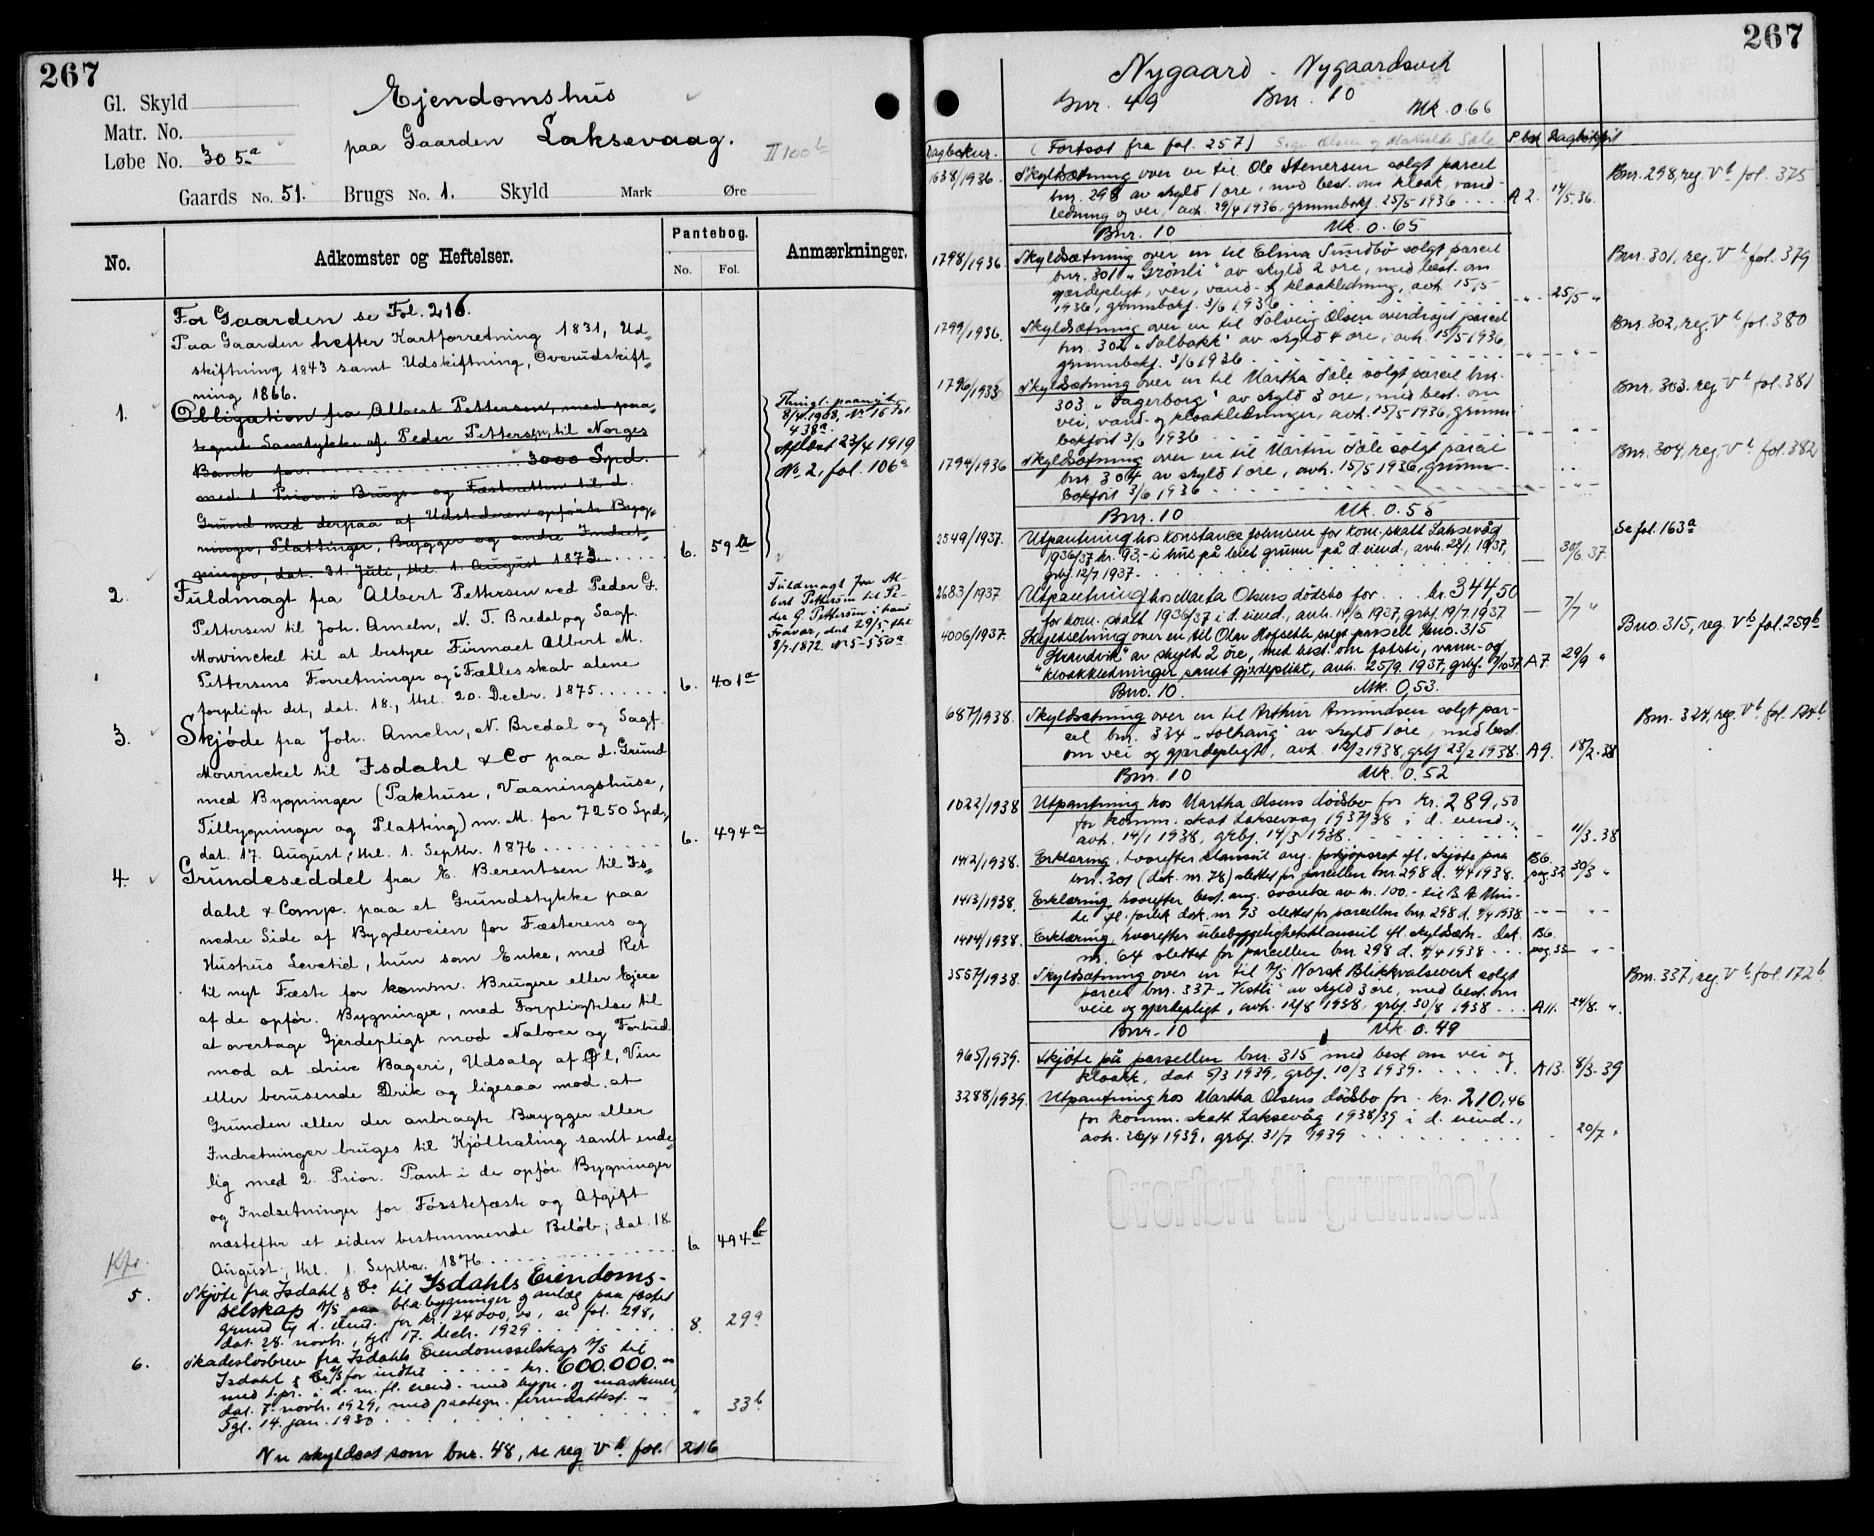 267
Gl. Skyld
Matr. No.
Løbe No. 305a
Ejendomshus
paa Gaarden Laksevaag.
II 100b
Gaards No. 51. Brugs No. 1. Skyld Mark Øre
No.
Adkomster og Heftelser.
Pantebog.
No. Fol.
Anmærkninger.
For Gaarden se Fol. 216.
Paa Gaarden hefter Kartforretning 1831, Ud-
skiftning 1843 samt Udskiftning, Overudskift-
ning 1866.
1. Obligation fra Albert Pettersen, med paa-
tegnet Samtykke af Peder Pettersen, til Norges
Bank for 3000 Spd.
med 1 Prior. i Brugs- og Fæsteretten til d.
Grund med derpaa af Udstederen opførte Byg-
ninger, Plattinger, Brygger og andre Indret-
ninger, dat. 31. Juli, thl. 1. August 1873. 6. 59a
Thingl. paanyt
8/4 1903, Nr 16 fol
438a.
Aflæst 23/4 1919
No 2, fol. 106a
2. Fuldmagt fra Albert Pettersen ved Peder G.
Pettersen til Joh. Ameln, N. T. Bredal og Sagf.
Mowinckel til at bestyre Firmaet Albert M.
Pettersens Forretninger og i Fællesskab alene
forpligte det, dat. 18., thl. 20. Decbr. 1875. 6. 401a
Fuldmagt fra Al-
bert Pettersen til Pe-
der G. Pettersen i hans
Fravær, dat 29/5 thl
8/7 1872 N 5-550a
3. Skjøde fra Joh. Ameln, N. Bredal og Sagf.
Mowinckel til Isdahl & Co paa d. Grund
med Bygninger (Pakhuse, Vaaningshuse,
Tilbygninger og Platting) m. M. for 7250 Spd,
dat. 17. August, thl. 1. Septbr. 1876 6. 494a
4. Grundeseddel fra E. Berentsen til Is-
dahl & Comp. paa et Grundstykke paa
nedre Side af Bygdeveien for Fæsterens og
Hustrus Levetid, hun som Enke, med Ret
til nyt Fæste for komm. Brugere eller Ejere
af de opfør. Bygninger, med Forpligtelse til
at overtage Gjerdepligt mod Naboer og Forbud
mod at drive Bageri, Udsalg af Øl, Vin
eller berusende Drik og ligesaa mod at
Grunden eller der anbragte Brygger eller
Indretninger bruges til Kjølhaling samt ende-
lig med 2. Prior. Pant i de opfør. Bygninger
og Indretninger for Førstefæste og Afgift
næstefter et siden bestemmende Beløb; dat. 18.
August, thl. 1. Septbr. 1876 6 494b
Kfr.
5. Skjøte fra Isdahl & Co til Isdahls Eiendoms-
selskap A/S paa bl.a. bygninger og anlæg paa fæstet
grund til d. eiend. for kr. 24000,00, se fol. 298,
dat. 28. novbr., tgl. 17. decbr. 1929 8. 29a
6. Skadesløsbrev fra Isdahls Eiendomsselskap A/S til
Isdahl & Co A/S for indtil kr. 600.000.00
med 1. pr. i d. m. fl. eiend. med bygn. og maskiner,
dat. 7. novbr. 1929, med paategn. firmaattest.
Tgl. 14. jan. 1930 " 33b
Nu skyldsat som bnr. 48, se reg Vb. fol. 216
267
Nygaard - Nygaardsvik
Gnr. 49 Bnr. 10 Mk. 0.66
Dagboknr. (Fortsat fra fol. 257) P.bok Dagbokført
1638/1936. Skyldsætning over en til Ole Stenersen solgt parcel
bnr. 298 av skyld 1 øre, med best. om kloak, vand-
ledning og vei, avh. 29/4 1936, grunnbokf. 25/5 1936 A 2. 14/5.36.
Bnr. 298, reg. Vb fol. 375
Bnr. 10 Mk. 0.65
1798/1936 Skyldsætning over en til Elina Sundbø solgt parcel
bnr. 301 "Grønli" av skyld 2 øre, med best. om
gjærdepligt, vei, vand- og kloakledning, avh. 15/5
1936, grunnbokf. 3/6 1936 " 25/5 "
Bnr. 301, reg. Vb fol. 379
1799/1936. Skyldsætning over en til Solveig Olsen overdraget parcel
bnr. 302 "Solbakk" av skyld 4 øre, avh. 15/5 1936,
grunnbokf. 3/6 1936
Bnr. 302, reg. Vb fol. 380
1796/1935 Skyldsætning over en til Martha Sæle solgt parcel bnr.
303 "Fagerborg" av skyld 3 øre, med best. om
vei, vand- og kloakledninger, avh. 15/5 1936, grunn-
bokført 3/6 1936
Bnr. 303. reg Vb fol. 381
1794/1936 Skyldsætning over en til Martin Sæle solgt parcel
bnr. 304 av skyld 1 øre, avh. 15/5 1936, grunn-
bokført 3/6 1936
Bnr. 304, reg. Vb fol. 382
Bnr. 10 Mk. 0.55
2549/1937. Utpantning hos Konstance Johnsen for kom. skatt Laksevåg
1936/37 kr. 93.- i hus på leiet grunn på d. eiend., avh. 28/1 1937,
grbf. 12/7 1937. 30/6 37
Se fol. 163a
2683/1937 Utpantning hos Marta Olsens dødsbo for kr. 344,50
for kom. skatt 1936/37 i d. eiend., avh. 14/6 1937, grbf. 19/7 1937 7/7 "
4006/1937. Skyldsetning over en til Olav Hofseth solgt parsell bno. 315
"Strandvik" av skyld 2 øre, med best. om fotsti, vann- og
kloakkledninger, samt gjerdeplikt, avh. 25/9 1937, grbf. 9/10 37 A 7. 29/9 "
Bno. 315, reg. Vb fol. 259b
Bno. 10. Mk. 0,53.
687/1938. Skyldsetning over en til Arthur Amundsen solgt par-
cel bnr. 324 "Solhaug" av skyld 1 øre, med best.
om vei og gjærdepligt, avh. 12/2 1938, grbf 23/2 1938. A 9. 18/2.38
Bnr. 324, reg. Vb fol. 124b
Bnr. 10 Mk. 0.52
1022/1938 Utpantning hos Martha Olsens dødsbo for kr. 289,50
for komm. skat Laksevaag 1937/38 i d. eiend.,
avh. 14/1 1938, grbf. 14/3 1938. 11/3.38
1412/1938. Erklæring, hvorefter klausul ang. forkjøpsret ifl. skjøte paa
bnr. 301 (dok. nr. 78) slettes for parcellen bnr 298 d. 4/4 1938. B6. pag. 32 30/3 "
1413/1938. Erklæring hvorefter best. ang. svarelse av kr. 100.- til B. A. Mun-
de ifl. forlik dok. nr 73 slettes for parcellen bnr. 298 d. 4/4 1938
1414/1938. Erklæring, hvorefter ubebyggelighetsklausul ifl. skyldsætn. dok.
nr. 64 slettes for parcellen bnr 298 d. 4/4 1938 B6. pag. 33
3557/1938. Skyldsætning over en til A/S Norsk Blikkvalseverk solgt
parcel bnr. 337 "Vestli" av skyld 3 øre, med best. om
veie og gjærdepligt, avh. 12/8 1938, grbf. 30/8 1938 A 11. 24/8. "
Bnr. 337, reg. Vb fol 172b
Bnr. 10 Mk 0.49
965/1939. Skjøte på parsellen bnr. 315 med best om vei og
kloakk, dat 5/3 1939, grbf. 10/3 1939. A 13. 8/3.39
3288/1939. Utpantning hos Martha Olsens dødsbo for kr. 210,46
for komm. skatt Laksevåg 1938/39 i d. eiend.,
avh. 26/4 1939, grbf. 31/7 1939 20/7 "
Overført til grunnbok